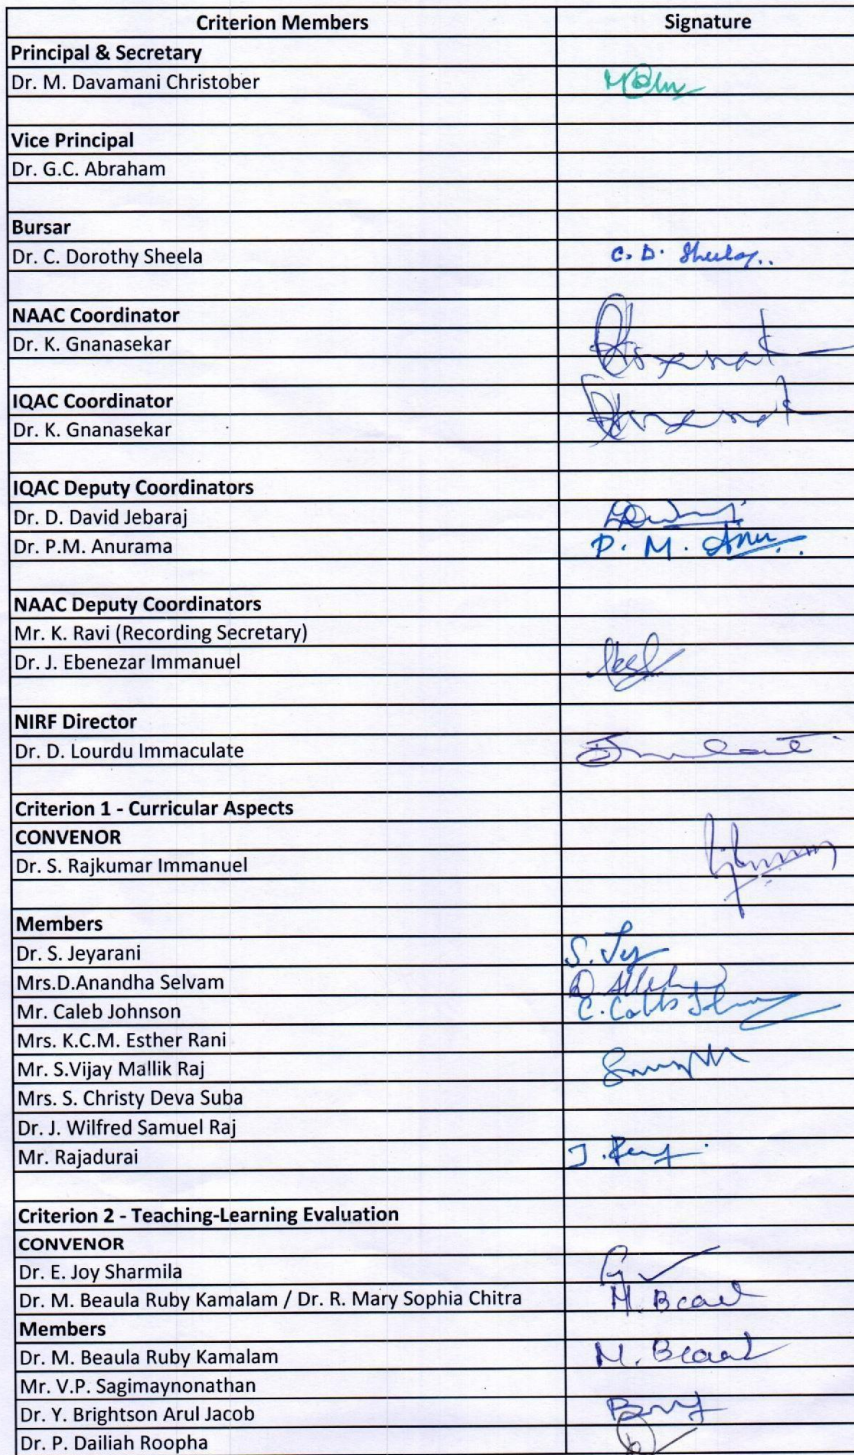 Criterion Members Signature
Principal & Secretary
Dr. M. Davamani Christober
Vice Principal
Dr. G.C. Abraham
Bursar
Dr. C. Dorothy Sheela C. D. Sheela..
NAAC Coordinator
Dr. K. Gnanasekar
IQAC Coordinator
Dr. K. Gnanasekar
IQAC Deputy Coordinators
Dr. D. David Jebaraj
Dr. P.M. Anurama P. M. Anu..
NAAC Deputy Coordinators
Mr. K. Ravi (Recording Secretary)
Dr. J. Ebenezar Immanuel
NIRF Director
Dr. D. Lourdu Immaculate
Criterion 1 - Curricular Aspects
CONVENOR
Dr. S. Rajkumar Immanuel
Members
Dr. S. Jeyarani S. Jey
Mrs.D.Anandha Selvam
Mr. Caleb Johnson
Mrs. K.C.M. Esther Rani
Mr. S.Vijay Mallik Raj
Mrs. S. Christy Deva Suba
Dr. J. Wilfred Samuel Raj
Mr. Rajadurai
Criterion 2 - Teaching-Learning Evaluation
CONVENOR
Dr. E. Joy Sharmila
Dr. M. Beaula Ruby Kamalam / Dr. R. Mary Sophia Chitra M. Beaul
Members
Dr. M. Beaula Ruby Kamalam M. Beaul
Mr. V.P. Sagimaynonathan
Dr. Y. Brightson Arul Jacob
Dr. P. Dailiah Roopha